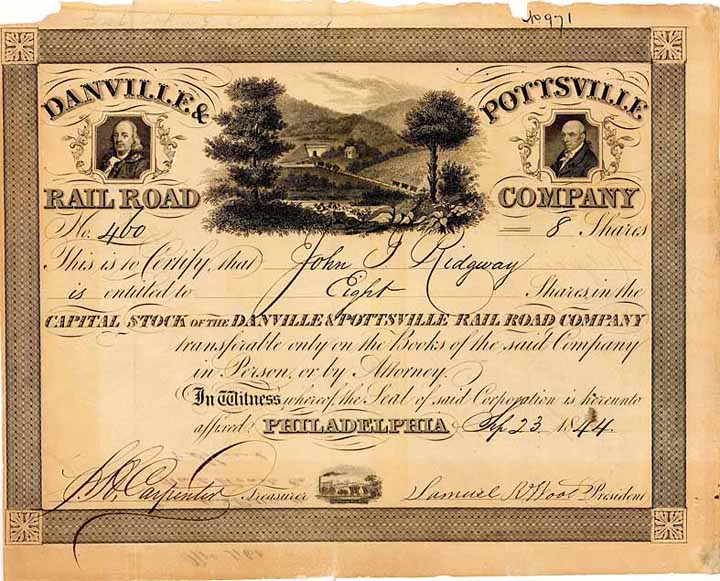 No 971
DANVILLE & POTTSVILLE
RAIL ROAD COMPANY
No. 460 8 Shares
This is to Certify, that John F Ridgway
is entitled to Eight Shares, in the
CAPITAL STOCK OF THE DANVILLE & POTTSVILLE RAIL ROAD COMPANY
transferable only on the Books of the said Company
in Person, or by Attorney.
In Witness whereof, the Seal of said Corporation is hereunto
affixed PHILADELPHIA Sep 23 1844.
Carpenter Treasurer Samuel R Wood President